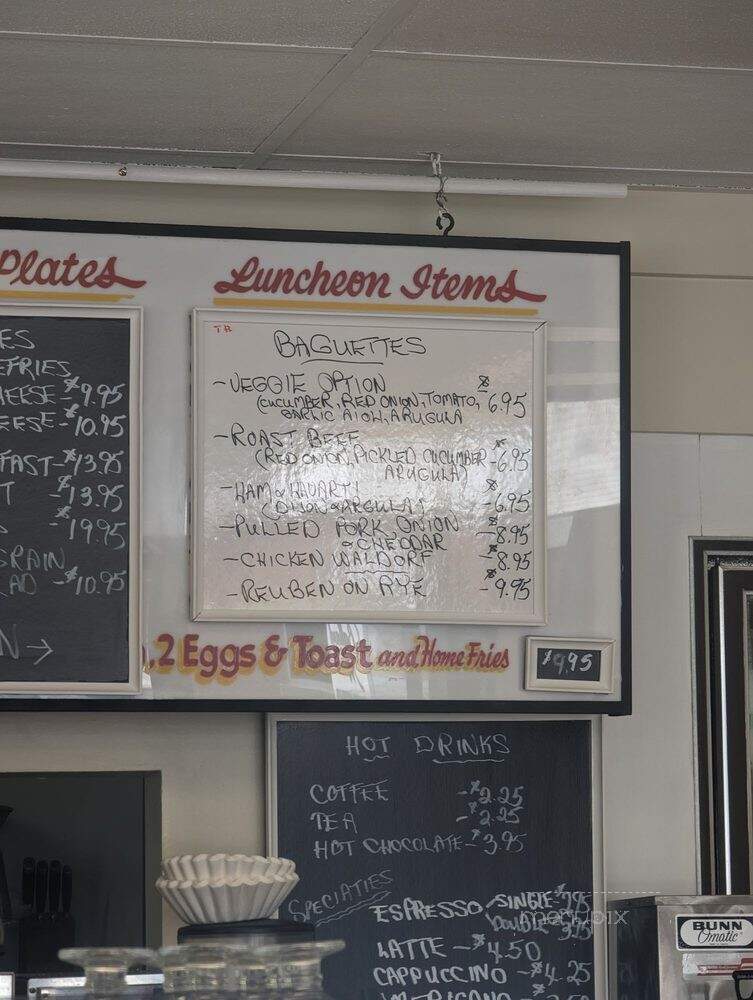 Plates
ES
EFRIES
HEESE - $9.95
EESE - $10.95
FAST - $13.95
T - $13.95
S - $19.95
GRAIN
AD - $10.95
N →
Luncheon Items
TR
BAGUETTES
- VEGGIE OPTION $
(CUCUMBER, RED ONION, TOMATO, - 6.95
GARLIC AIOLI, ARUGULA
- ROAST BEEF $
(RED ONION, PICKLED CUCUMBER - 6.95
ARUGULA)
- HAM & HAVARTI $
(DIJON & ARGULA) - 6.95
- PULLED PORK ONION $
& CHEDDAR - 8.95
- CHICKEN WALDORF - $8.95
- REUBEN ON RYE - $9.95
, 2 Eggs & Toast and Home Fries
$9.95
HOT DRINKS
COFFEE - $2.25
TEA - $2.25
HOT CHOCOLATE - $3.95
SPECIATIES
ESPRESSO SINGLE
DOUBLE 3.95
LATTE - $4.50
CAPPUCCINO - $4.25
AMERICANO
menupix
BUNN
Omatic